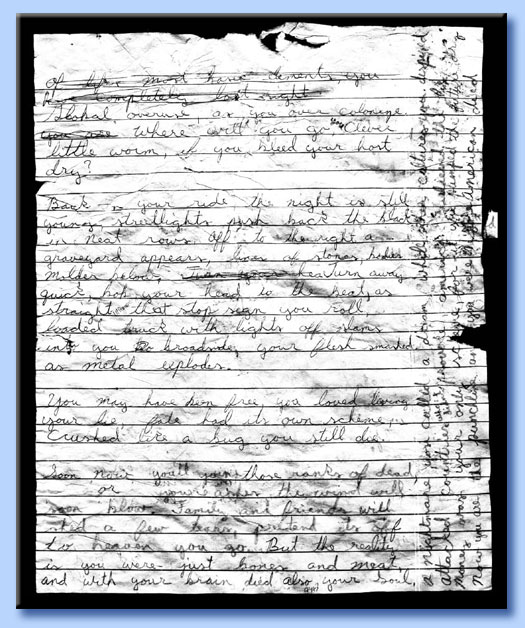 of life, most elements, you
completely lost sight
Global overuse, as you over colonize,
you are where will you go, you clever
little worm, if you bleed your host
dry?
Back in your ride the night is still
young, streetlights push back the black
in neat rows. Off to the right a
graveyard appears, lines of stones, bodies
molder below. turn away
quick, bob your head to the beat, as
straight thru that stop sign you roll,
loaded truck with lights off slams
into you broadside, your flesh smashed
as metal explodes.
You may have been free, you loved living
your lie, fate had its own scheme
crushed like a bug you still die.
Soon now, you'll join those ranks of dead
or your ashes the wind will
soon blow. Family and friends will
shed a few tears, pretend it's off
to heaven you go. But the reality
is you were just bones and meat,
and with your brain died also your soul.
a nightmare you called a dream while other cultures you despised
Attacked countries
Money was your only you pumped the dry
Now you are the punchline as you American